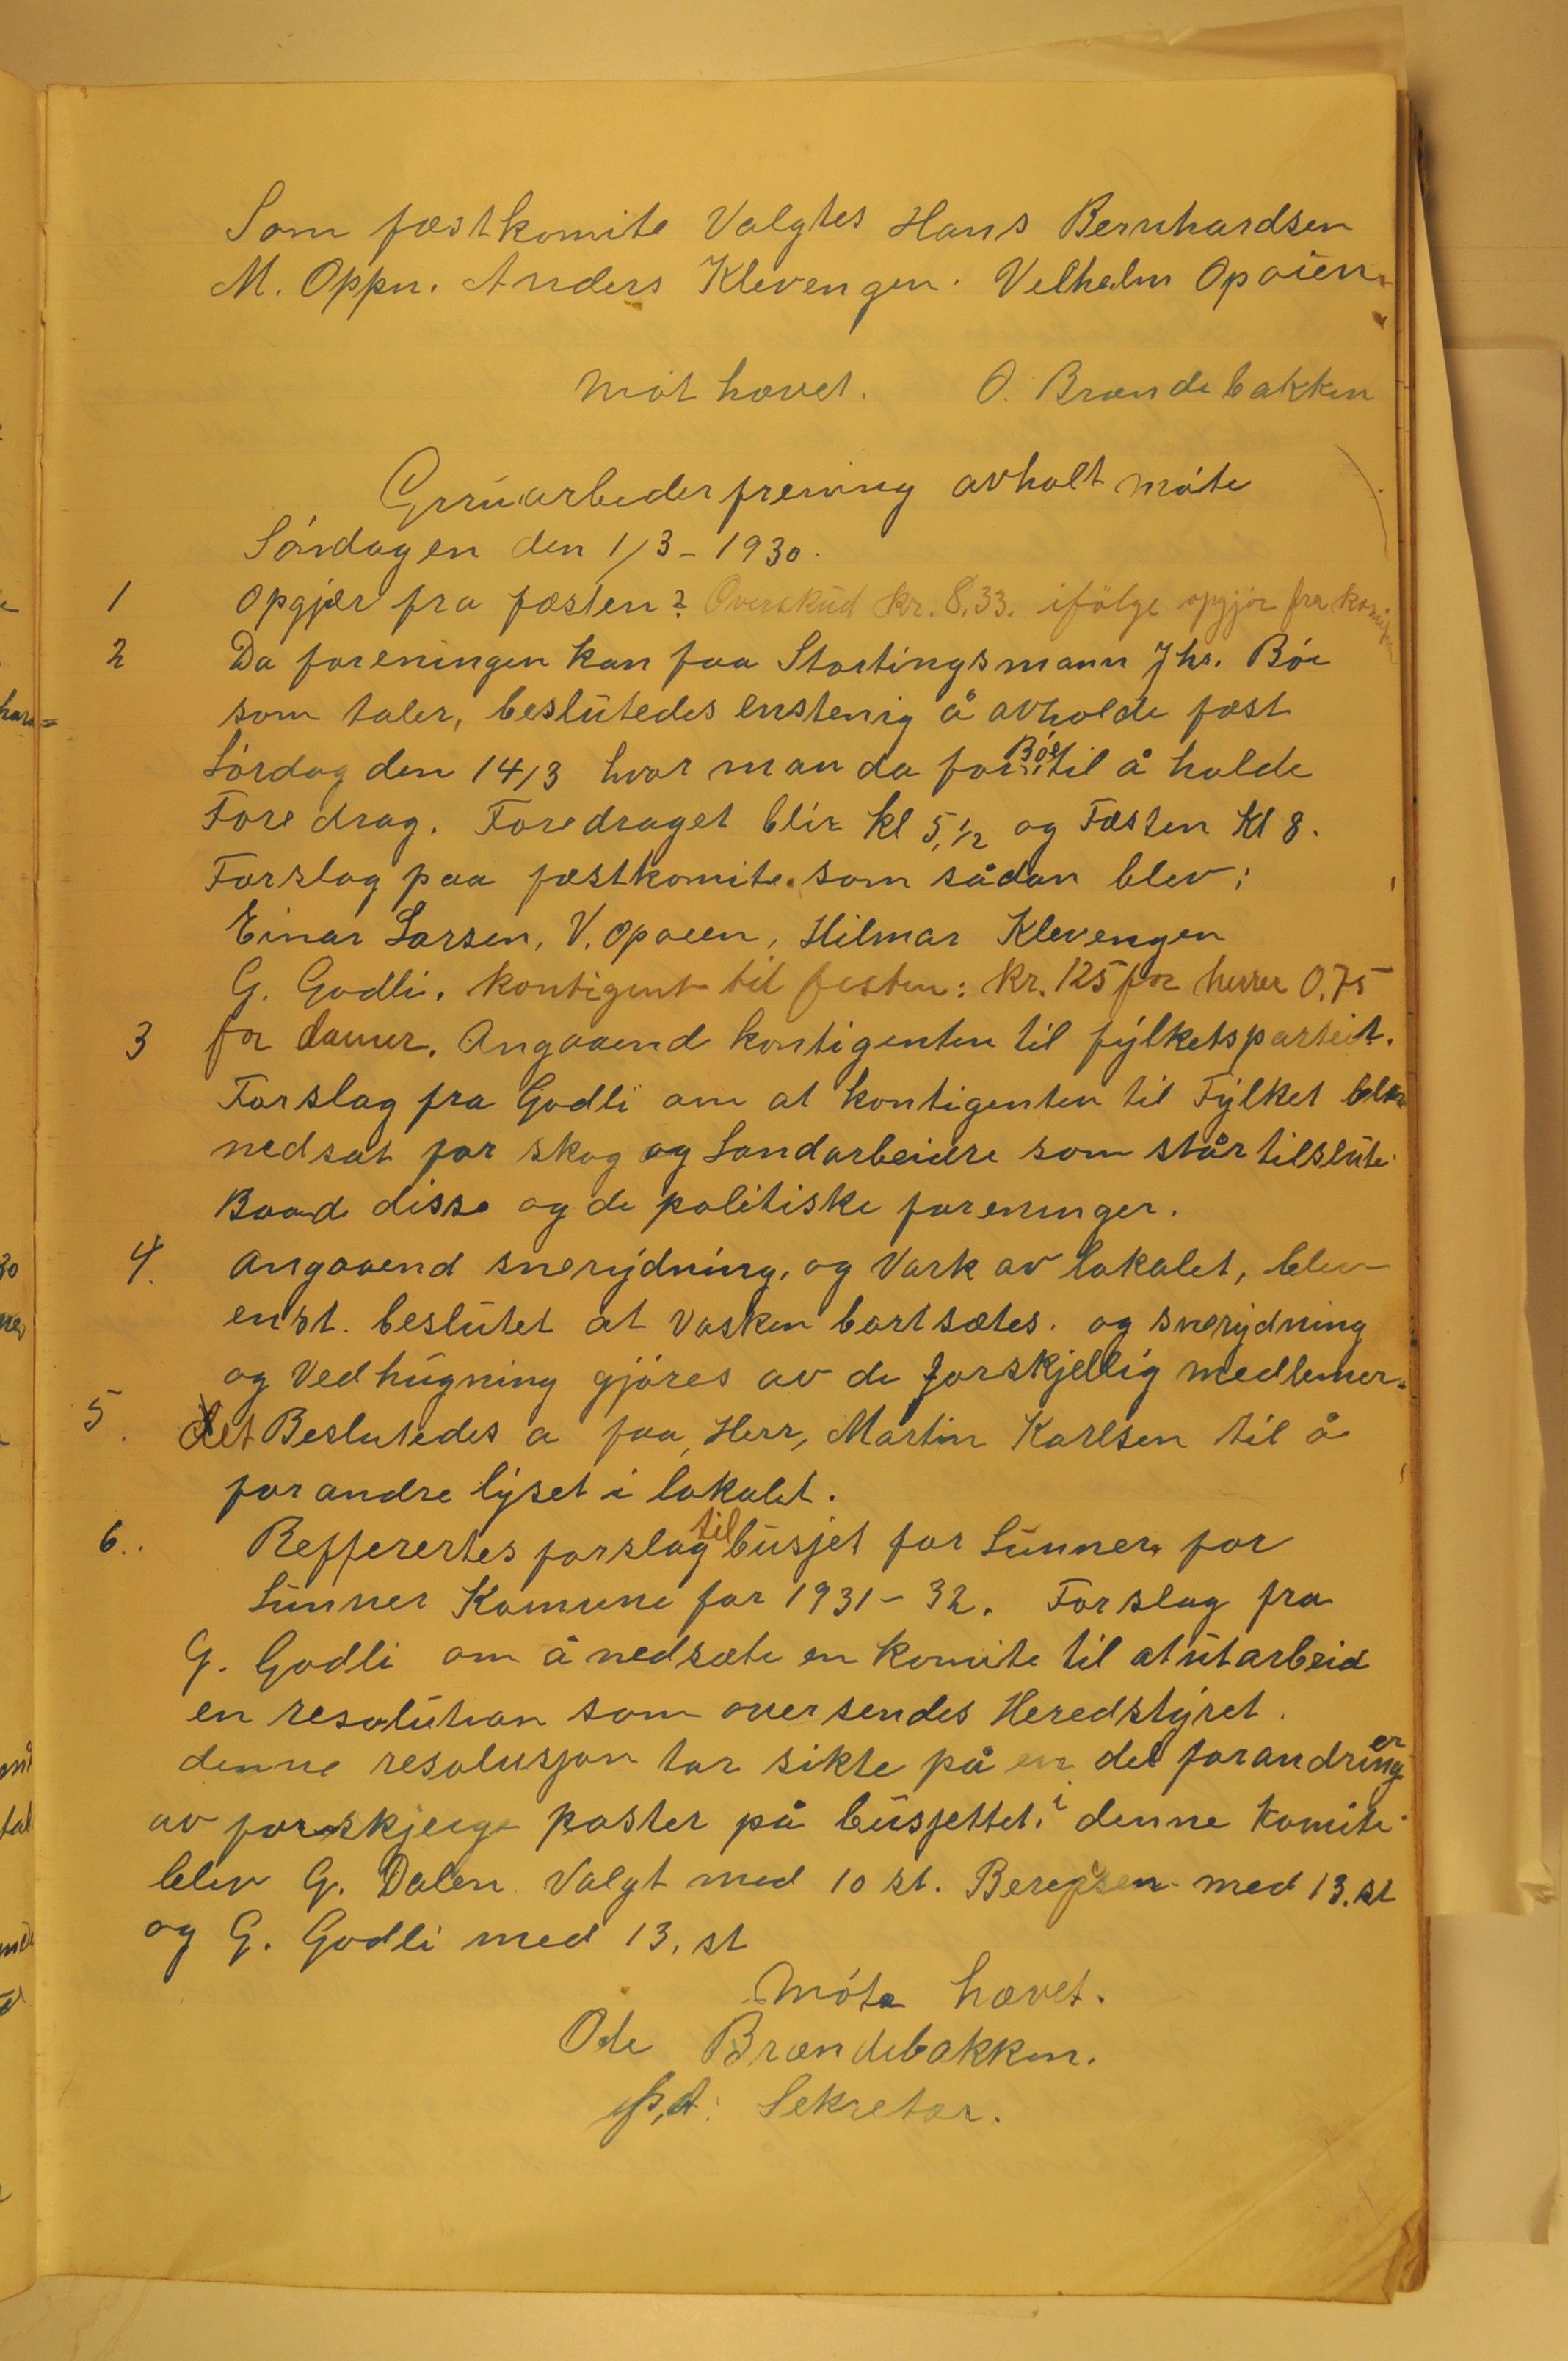 Som fæstkomite Valgtes Hans Bernhardsen
M. Oppn. Anders Klevengen. Velhelm Opaien
Møt hævet. O. Brændebakken
Gruarbederfrening avholt møte
Søndagen den 1/3 - 1930.
1 Opgjør fra fæsten? Overskud kr. 8.33. ifølge opgjør fra komiteen
2 Da foreningen kan faa Stortingsmann Jhs. Bøe
som taler, beslutedes enstenig å avholde fæst
Lørdag den 14/3 hvor man da får Bøe til å holde
Foredrag. Foredraget blir kl 5,½ og Fæsten Kl 8.
Forslag paa fæstkomite som sådan blev:
Einar Larsen, V. Opaeen, Hilmar Klevengen
G. Godli. Kontigent til festen: kr. 125 for herrer 0,75
3 for damer. Angaaend kontigenten til fylketspartiet.
Forslag fra Godli om at kontigenten til Fylket blev
nedsat for skog og Landarbeidre som står tilslute
Baade disse og de politiske foreninger.
4. Angaaend snerydning, og Vask av lokalet, blev
enst. beslutet at Vasken bortsætes. og snerydning
og Vedhugning gjøres av de forskjellig medlemer.
5. det Beslutedes a faa, Herr, Martin Karlsen til å
forandre lyset i lokalet.
6.. Refferertes forslag til busjet for Lunner for
Lunner Komune for 1931-32. Forslag fra
G. Godli om å nedsæte en komite til at utarbeid
en resolution som oversendes Heredstyret.
denne resolusjon tar sikte på en del forandringer
av forskjeige poster på busjettet. i denne Komite
blev G. Dalen Valgt med 10 st. med 13. st
og G. Godli med 13, st
Møte hævet.
Ole Brændebakken.
p,t. Sekretær.